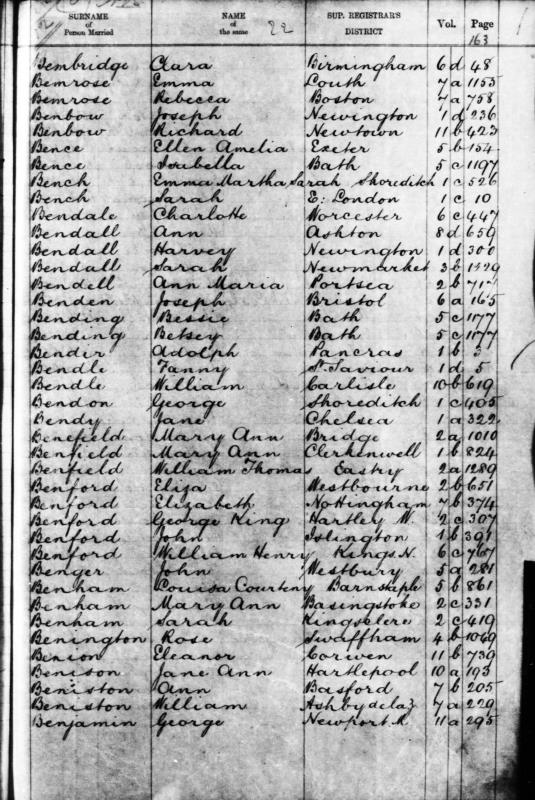 SURNAME of Person Married NAME of the same 22 SUP. REGISTRAR'S DISTRICT Vol. Page
163
Bembridge Clara Birmingham 6 d 48
Bemrose Emma Louth 7 a 1155
Bemrose Rebecca Boston 7 a 758
Benbow Joseph Newington 1 d 236
Benbow Richard Newtown 11 b 423
Bence Ellen Amelia Exeter 5 b 154
Bence Isabella Bath 5 c 1197
Bench Emma Martha Sarah Shoreditch 1 c 526
Bench Sarah E: London 1 c 10
Bendale Charlotte Worcester 6 c 447
Bendall Ann Ashton 8 d 659
Bendall Harvey Newington 1 d 300
Bendall Sarah Newmarket 3 b
Bendell Ann Maria Portsea 2 b
Benden Joseph Bristol 6 a 165
Bending Bessie Bath 5 c 1177
Bending Betsey Bath 5 c 1177
Bendir Adolph Pancras 1 b 3
Bendle Fanny St. Saviour 1 d 5
Bendle William Carlisle 10 b 619
Bendon George Shoreditch 1 c 405
Bendy Jane Chelsea 1 a 322
Benefield Mary Ann Bridge 2 a 1010
Benfield Mary Ann Clerkenwell 1 b 824
Benfield William Thomas Eastry 2 a 1289
Benford Eliza Westbourne 2 b 651
Benford Elizabeth Nottingham 7 b 374
Benford George King Hartley W. 2 c 307
Benford John Islington 1 b 391
Benford William Henry Kings N. 6 c 767
Benger John Westbury 5 a 281
Benham Louisa Courteny Barnstaple 5 b 861
Benham Mary Ann Basingstoke 2 c 331
Benham Sarah Kingsclere 2 c 419
Benington Rose Swaffham 4 b 1049
Benion Eleanor Corwen 11 b 730
Benison Jane Ann Hartlepool 10 a 193
Beniston Ann Basford 7 b 205
Beniston William Ashby de la Z 7 a 229
Benjamin George Newport M 11 a 295